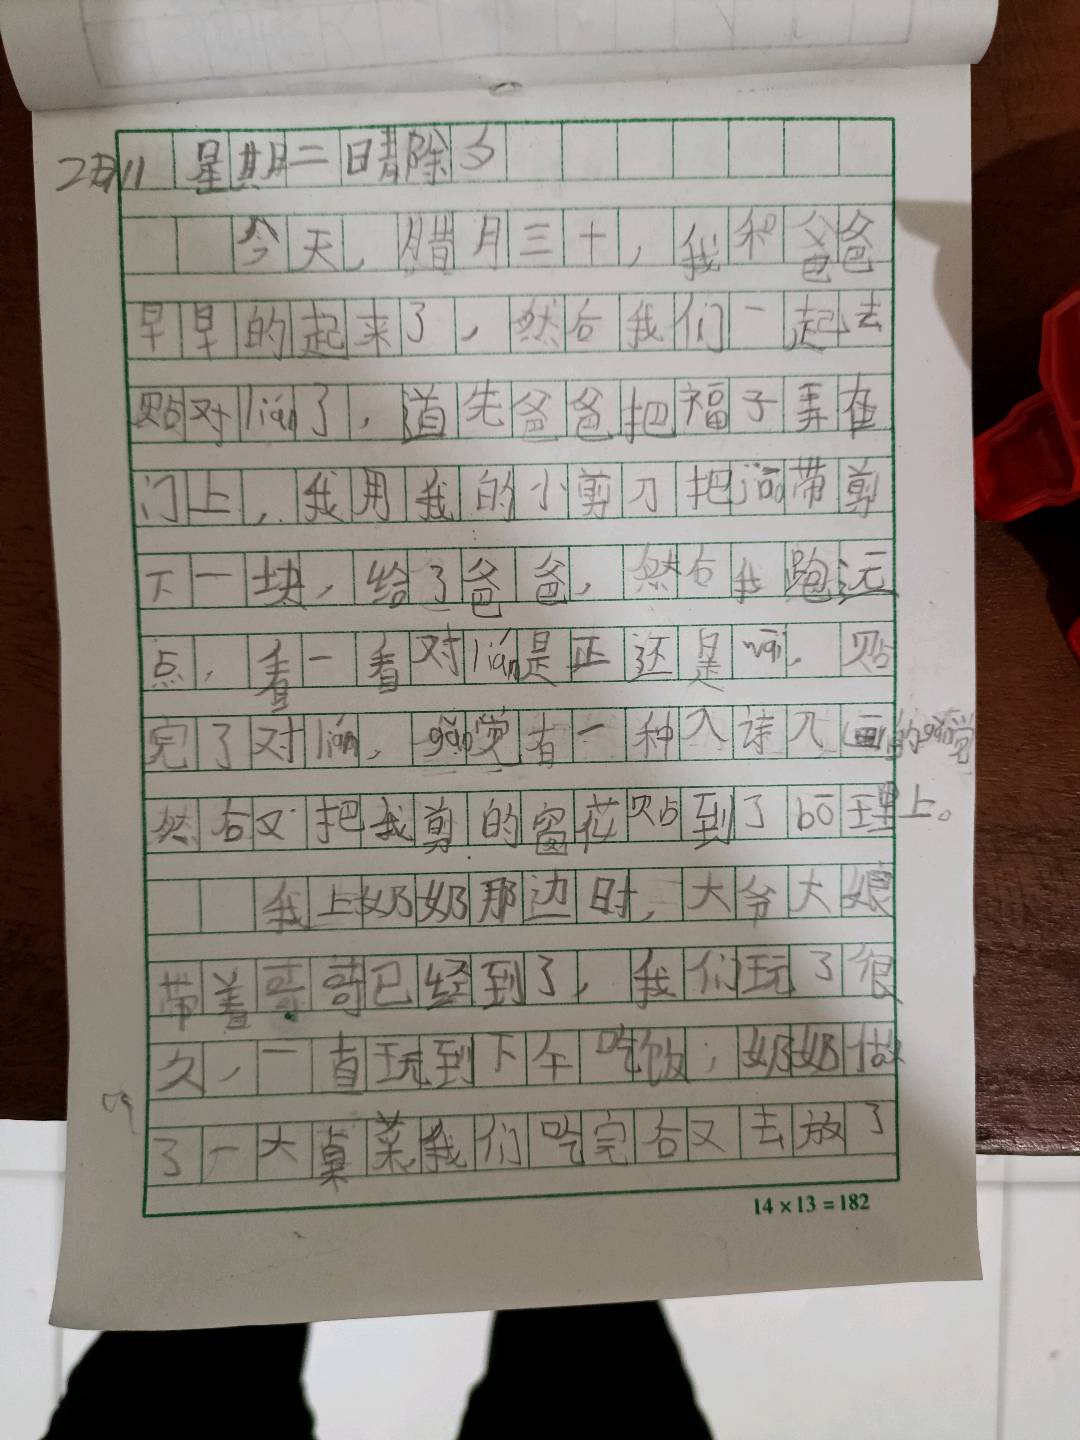 2月11 星期二 晴 除夕
今天，腊月三十，我和爸爸
早早的起来了，然后我们一起去
贴对lián了，道先爸爸把福子弄在
门上，我用我的小剪刀把jiāo带剪
下一块，给了爸爸，然右我跑远
点，看一看对lián是正还是wāi，贴
完了对lián，gǎn觉有一种入诗入画的gǎn觉
然右又把我剪的窗花贴到了bō理上。
我上奶奶那边时，大爷大娘
带着哥哥已经到了，我们玩了很
久，一直玩到下午吃饭，奶奶做
了一大桌菜我们吃完右又去放了
14×13=182